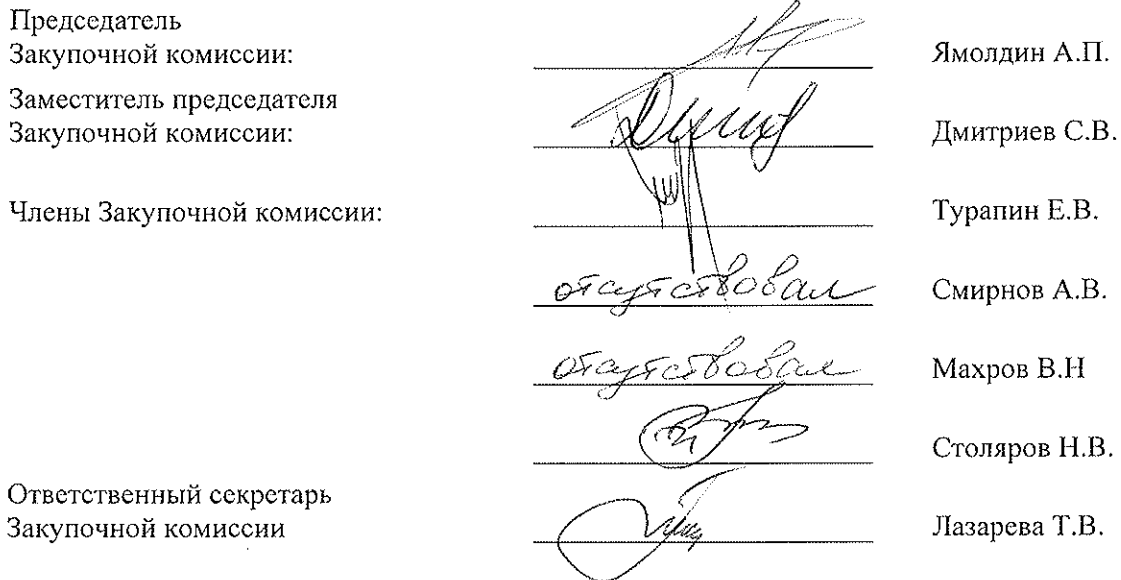 Председатель
Закупочной комиссии: Ямолдин А.П.
Заместитель председателя
Закупочной комиссии: Дмитриев С.В.
Члены Закупочной комиссии: Турапин Е.В.
отсутствовал Смирнов А.В.
отсутствовал Махров В.Н
Столяров Н.В.
Ответственный секретарь
Закупочной комиссии Лазарева Т.В.